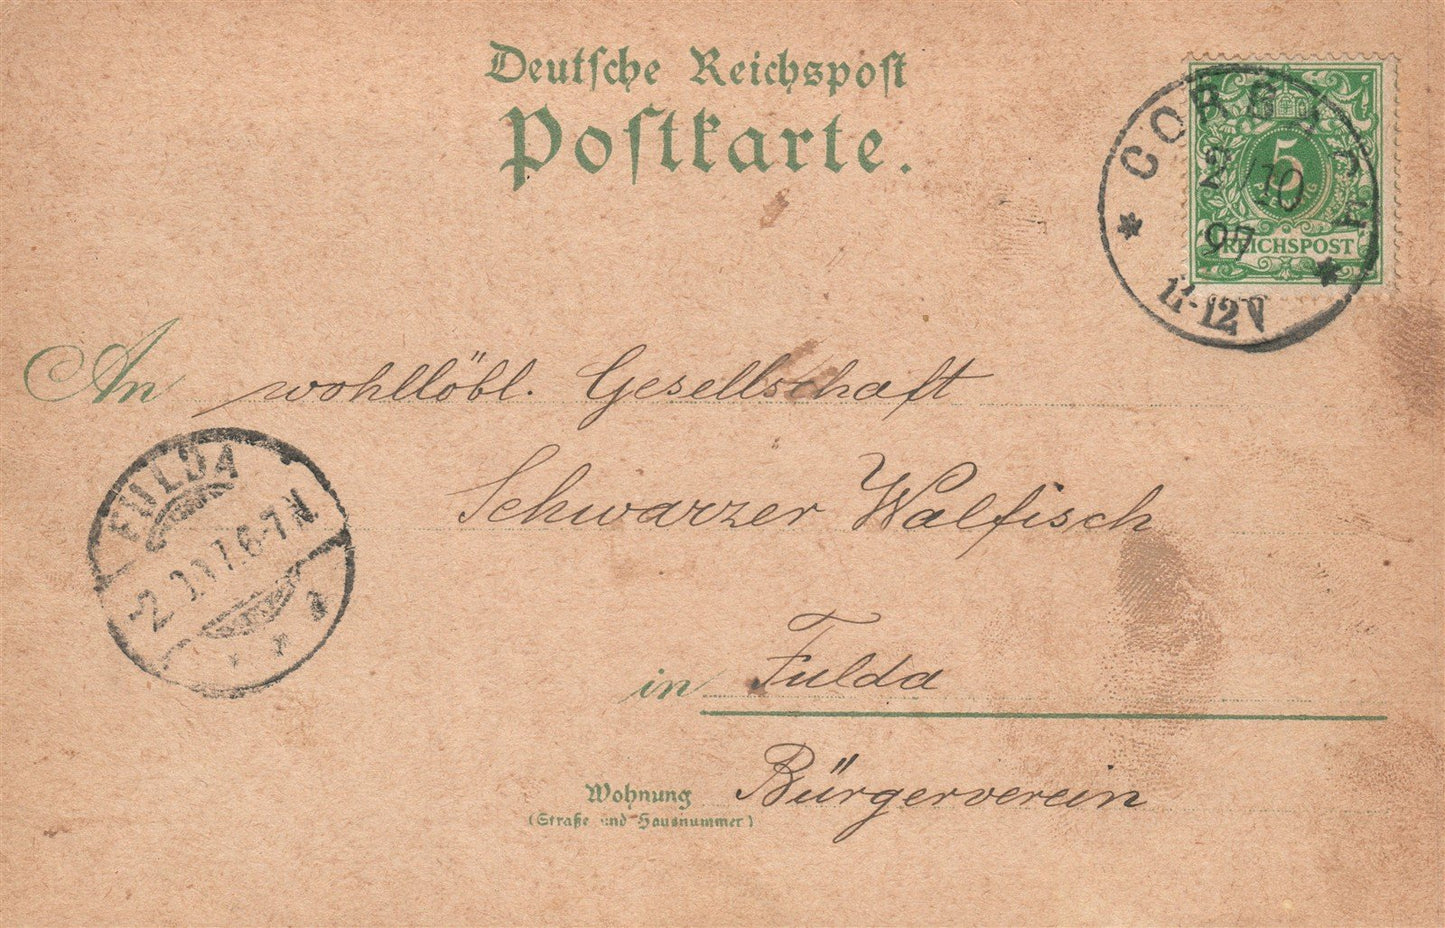 Deutsche Reichspost
Postkarte.
CORBACH
2/10
97
11-12V
5
REICHSPOST
An wohllöbl. Gesellschaft
FULDA
6-7N
Schwarzer Walfisch
in Fulda
Wohnung Bürgerverein
(Straße und Hausnummer)